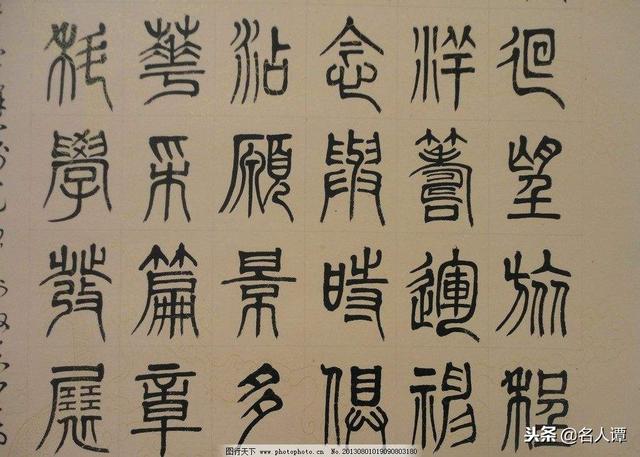 徊望旅程
洋運
念與時俱
沾願景多
華采篇章
科學發展
图行天下 www.photophoto.cn No.20130801019090803180
头条 @名人谭